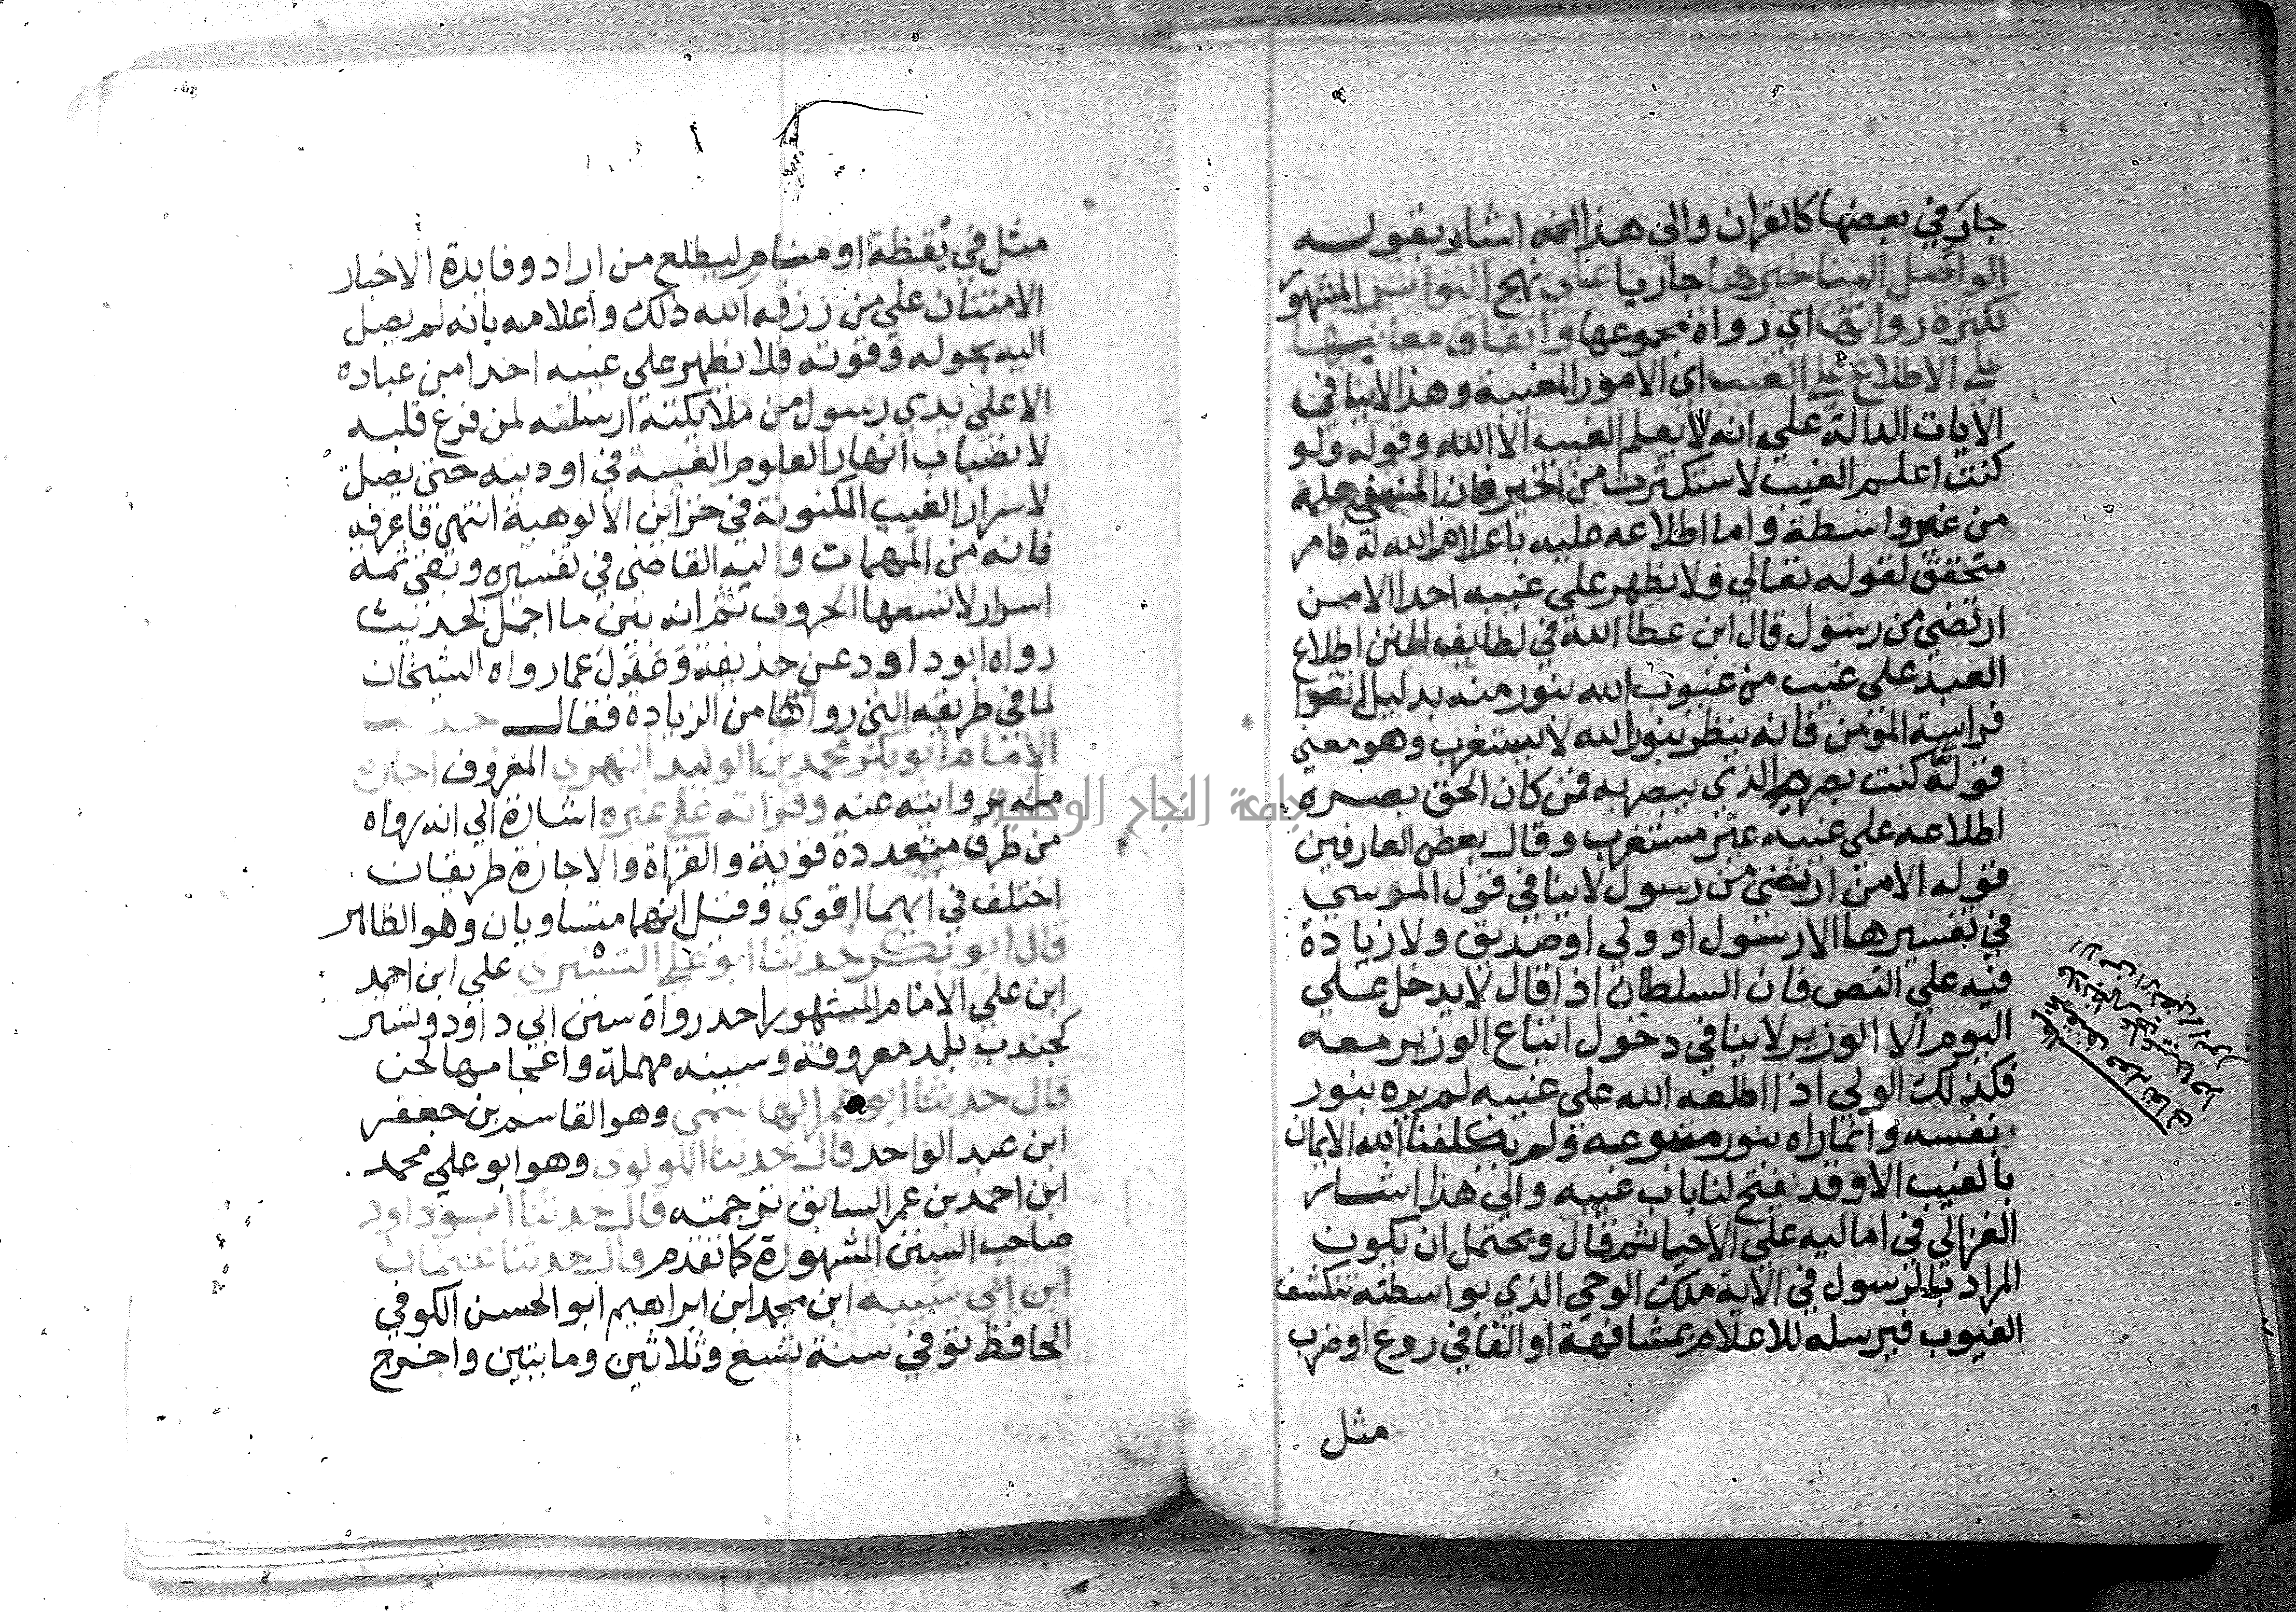 جار في بعضها كالقران والي هذا كله اشار بقوله
الواصل الينا خبرها جاريا علي نهج التواتر المشهور
لكثرة رواتها اي رواة مجموعها واتفاق معانيها
علي الاطلاع علي الغيب اي الامور المغيبة وهذا لا ينافي
الايات الدالة علي انه لا يعلم الغيب الا الله وقوله ولو
كنت اعلم الغيب لاستكثرت من الخير فان المنفي علمه
من غير واسطة واما اطلاعه عليه باعلام الله له فامر
متحقق لقوله تعالي فلا يظهر علي غيبه احدا الا من
ارتضي من رسول قال ابن عطا الله في لطايف المنن اطلاع
العبد علي غيب من غيوب الله بنور منه بدليل اتقوا
فراسة المؤمن فانه ينظر بنور الله لا يستغرب وهو معني
قوله كنت بصره الذي يبصر به فمن كان الحق بصره
اطلاعه علي غيبه غير مستغرب وقال بعض العارفين
قوله الا من ارتضي من رسول لا ينافي قول المرسي
في تفسيرها الا رسول او ولي او صديق ولا زيادة
فيه علي النص فان السلطان اذا قال لا يدخل علي
اليوم الا الوزير لا ينافي دخول اتباع الوزير معه
فكذلك الولي اذا اطلعه الله علي غيبه لم يره بنور
نفسه وانما راه بنور متبوعه ولم يكلفنا الله الايمان
بالغيب الا وقد يفتح لنا باب غيبه والي هذا اشار
الغزالي في اماليه علي الاحيا ثم قال ويحتمل ان يكون
المراد بالرسول في الاية ملك الوحي الذي بواسطته تنكشف
الغيوب فيرسله للاعلام بمشافهة او القا في روع او ضرب
مثل
مثل في يقظة او منام ليطلع من اراد وفايدة الاخبار
الامتنان علي من رزقه الله ذلك واعلامه بانه لم يصل
اليه بحوله وقوته فلا يظهر علي غيبه احدا من عباده
الا علي يدي رسول من ملايكته ارسلته لمن فرغ قلبه
لانصباب انهار العلوم الغيبية في اوديته حتي يصل
لاسرار الغيب المكنونة في خزاين الالوهية انتهي فاعرفه
فانه من المهمات واليه القاضي في تفسيره وبقي ثمة
اسرار لا تسعها الحروف ثم انه بين ما اجمل لحديث
رواه ابو داود عن حذيفة وعدل عما رواه الشيخان
لما في طريقه التي رواها من الزيادة فقال حدثنا
الامام ابو بكر محمد بن الوليد الفهري المعروف اجازة
منه بروايته عنه وقراته علي غيره اشارة الي انه رواه
من طرق متعددة قوية والقراة والاجازة طريقان
اختلف في ايهما اقوي وقيل انهما متساويان وهو الظاهر
قال ابو بكر حدثنا ابو علي التستري علي ابن احمد
ابن علي الامام المشهور احد رواة سنن ابي داود وتستر
كجندب بلد معروفة وسينه مهملة واعجامها لحن
قال حدثنا ابو عمر الهاشمي وهو القاسم بن جعفر
ابن عبد الواحد قال حدثنا اللولوي وهو ابو علي محمد
ابن احمد بن عمر السابق ترجمته قال حدثنا ابو داود
صاحب السنن المشهورة كما تقدم قال حدثنا عثمان
ابن ابي شيبه ابن محمد ابن ابراهيم ابو الحسن الكوفي
الحافظ توفي سنة تسع وثلاثين ومايتين واخرج
جامعة النجاح الوطنية